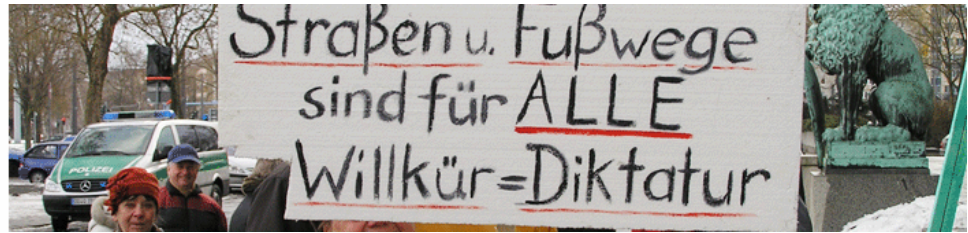 Straßen u. Fußwege
sind für ALLE
Willkür=Diktatur
POLIZEI